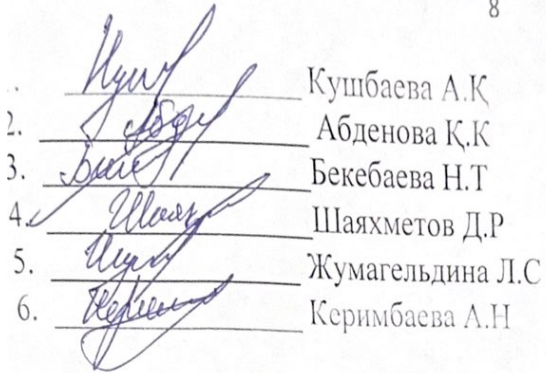 8
Кушбаева А.Қ
2. Абденова Қ.К
3. Бекебаева Н.Т
4. Шаяхметов Д.Р
5. Жумагельдина Л.С
6. Керимбаева А.Н